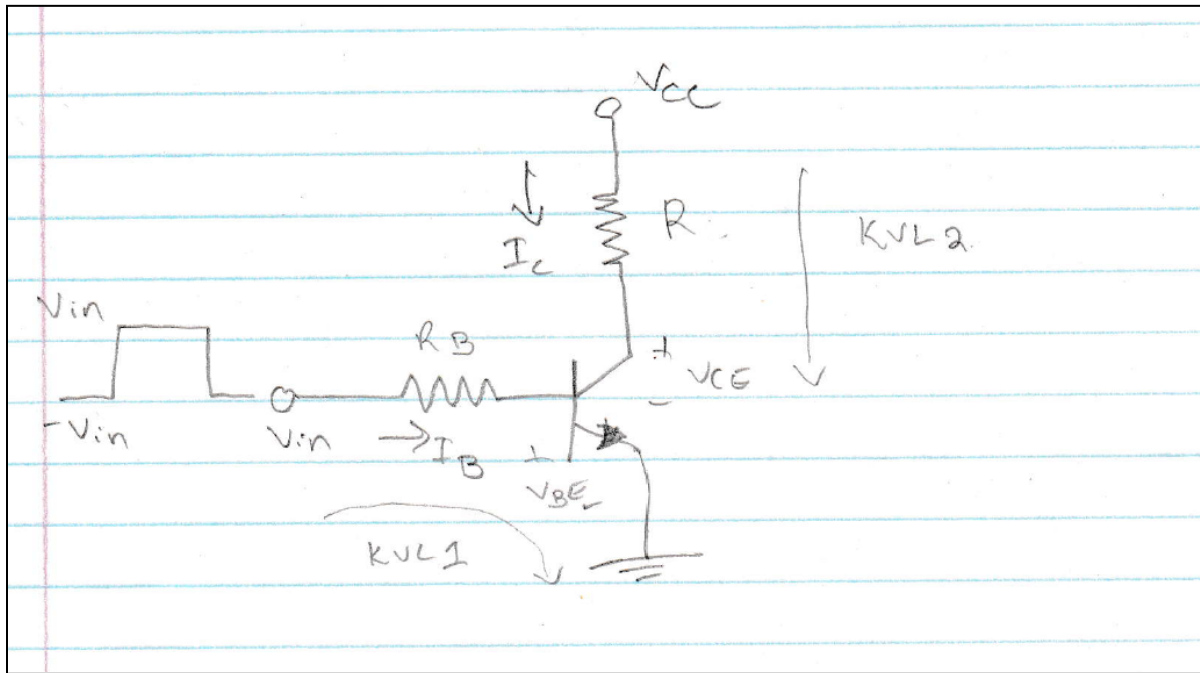 VCC
R
IC
KVL2
Vin
RB
+
VCE
-
-Vin
Vin
IB
+
VBE
-
KVL1